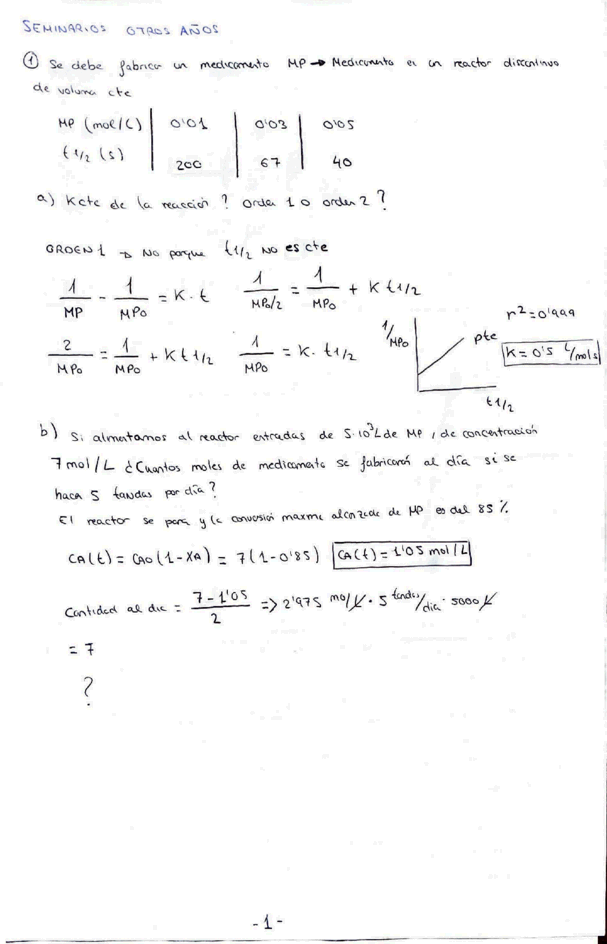 SEMINARIOS OTROS AÑOS
① Se debe fabricar un medicamento MP → Medicamento en un reactor discontinuo
de volumen cte
MP (mol/L) | 0'01 | 0'03 | 0'05
t1/2 (s) | 200 | 67 | 40
a) K cte de la reacción? orden 1 o orden 2?
ORDEN 1 → No porque t1/2 NO es cte
1/MP - 1/MP0 = K · t    1/(MP0/2) = 1/MP0 + K t1/2
2/MP0 = 1/MP0 + K t1/2    1/MP0 = K · t1/2    1/MP0    pte    r²=0'999
K = 0'5 L/mol s
t1/2
b) Si alimentamos al reactor entradas de 5·10³L de MP, de concentración
7 mol/L ¿Cuantos moles de medicamento se fabricaran al día si se
hacen 5 tandas por día?
El reactor se para y la conversión maxima alcanzada de MP es del 85%.
CA(t) = CA0(1-XA) = 7(1-0'85)    CA(t) = 1'05 mol/L
Cantidad al dia = (7-1'05)/2 => 2'975 mol/L · 5 tandas/dia · 5000 L
= 7
?
-1-